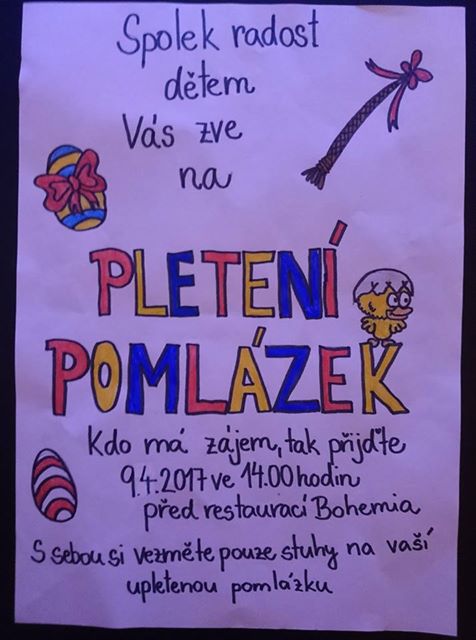 Spolek radost
dětem
Vás zve
na
PLETENÍ
POMLÁZEK
Kdo má zájem, tak přijďte
9.4.2017 ve 14.00 hodin
před restaurací Bohemia
S sebou si vezměte pouze stuhy na vaší
upletenou pomlázku